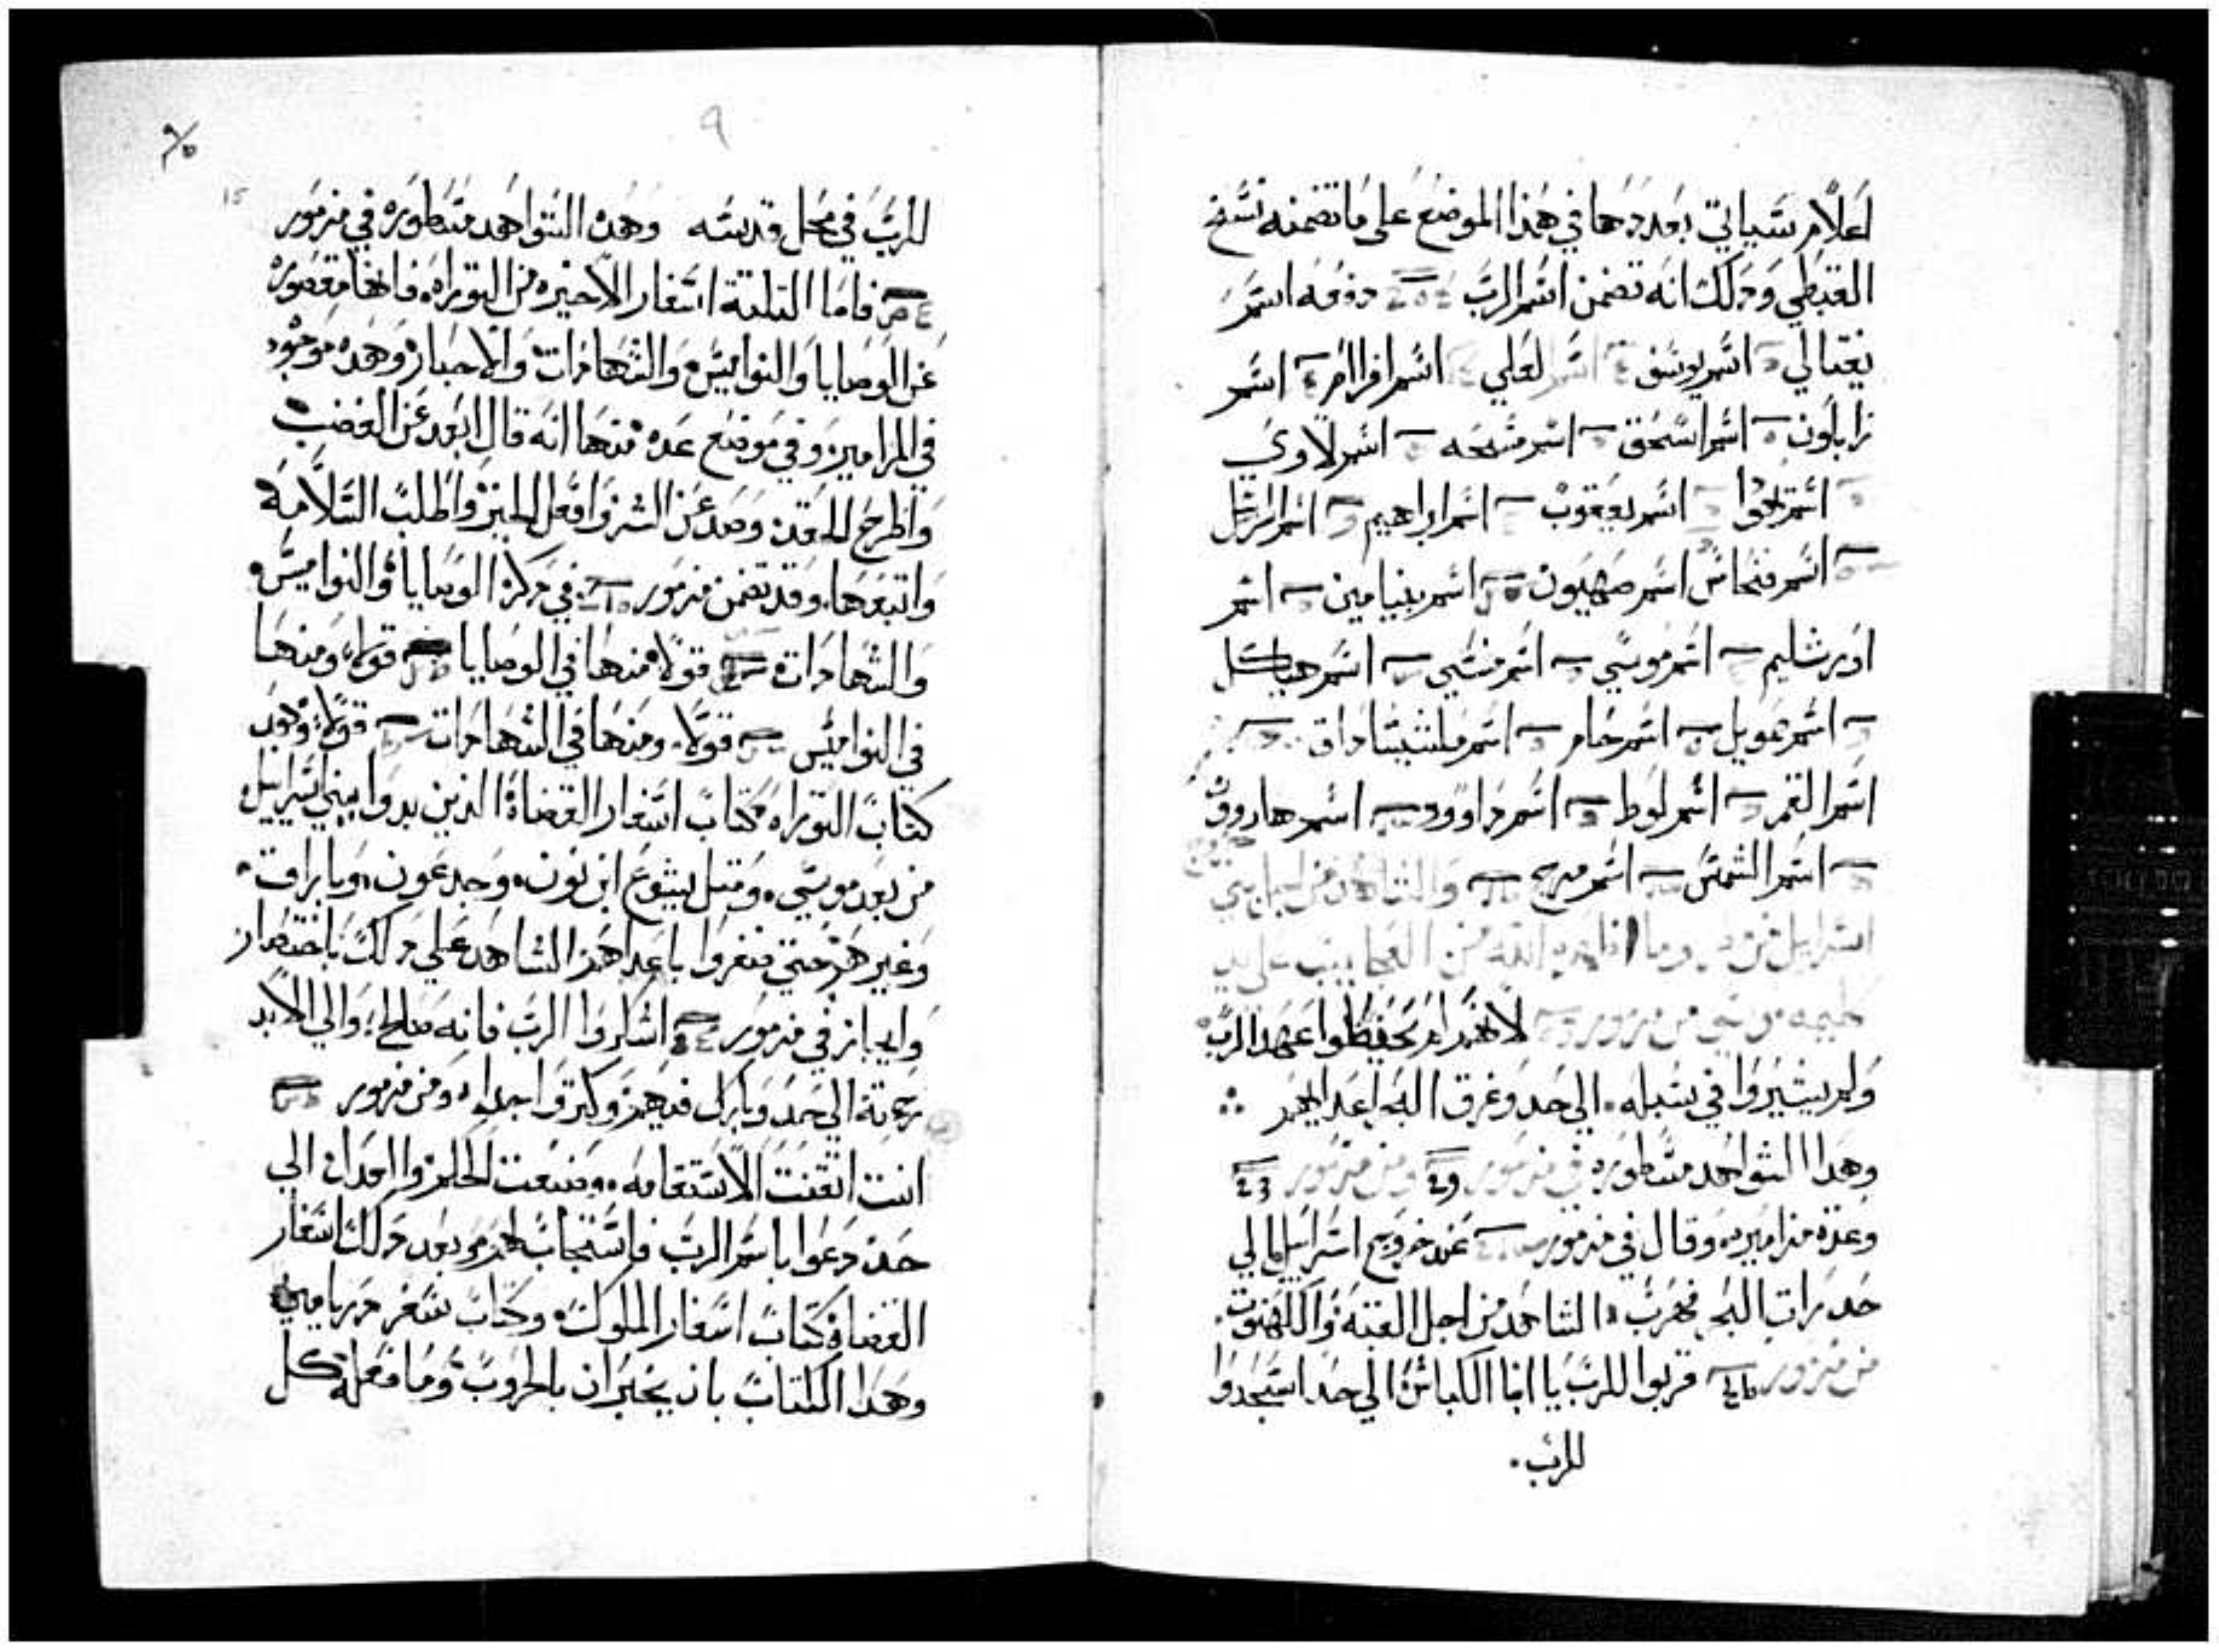 اعلام سياتي بعددها في هذا الموضع على ما تضمنه نسخ
القبطي وذلك انه تضمن اسم الرب دفعه اسم
تعالي اسم يوسف اسم لعلي اسم افرام اسم
زابلون اسم اسحق اسم مسحه اسم لاوي
اسم يعقوب اسم ابراهيم اسم
اسم فنحاس اسم صهيون اسم بنيامين اسم
اورشليم اسم موسي اسم منسي اسم هيكل
اسم عمويل اسم حام اسم ملشيساداق
اسم القمر اسم لوط اسم داوود اسم هارون
اسم الشمس اسم مريم
اسراييل من وما الله من العجايب علي يد
كليمه موسي من مزمور لانهم لم يحفظوا عهد الرب
ولم يسيروا في سبله الي حد وغرق البحر اعداهم
وهدا الشواهد مسطوره في مزمور ومن مزمور
وعدة مزاميره وقال في مزمور عند خروج اسراييل الي
حد رات البحر فهرب الشاهد من اجل القبه والكهنوت
من مزمور قربوا للرب يا ابنا الكباش الي حد اسجدوا
للرب
٩
للرب في محل قدسه وهده الشواهد مسطوره في مزمور
فاما التلتة اسفار الاخيره من التوراه فانها مقصوره
عن الوصايا والنواميس والشهادات والاحبار وهده موجود
في المزامير وفي موضع عده منها انه قال ابعد عن الغضب
واطرح الحقد وصد عن الشر وافعل الخير واطلب السلامة
واتبعها وقد تضمن مزمور في ذكر الوصايا والنواميس
والشهادات قولا منها في الوصايا قولا ومنها
في النواميس قولا ومنها في الشهادات قولا
كتاب التوراه كتاب اسفار القضاة الذين بدوا ببني اسراييل
من بعد موسي ومتل يشوع ابن نون وجدعون وباراق
وغيرهم حتي الشاهد علي ذلك باختصار
وايجاز في مزمور اشكروا الرب فانه صالح والي الابد
رحمته الي حد وبارك فيهم وكتروا جدا ومن مزمور
انت اتقنت الاستقامه وصنعت الحكم والعدل الي
حد دعوا باسم الرب فاستجاب لهم وبعد ذلك اسفار
القضاة كتاب اسفار الملوك وكتاب سفر
وهدا الكتاب بان يخبران بالحروب وما فعله كل